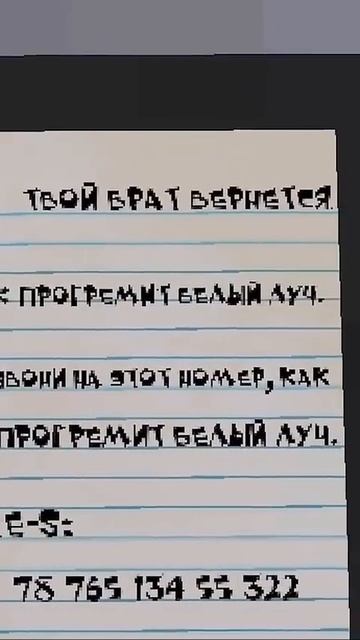 ТВОЙ БРАТ ВЕРНЕТСЯ
ПРОГРЕМИТ БЕЛЫЙ ЛУЧ.
ВОНИ НА ЭТОТ НОМЕР, КАК
ПРОГРЕМИТ БЕЛЫЙ ЛУЧ.
E-S:
78 765 134 55 322